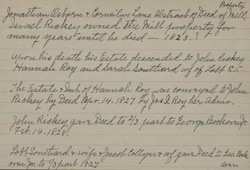 Property
Jonathan Osborn & Cornelius Lane Abstract of Deed of Mill.
Sewell Rickey owned the Mill property for
many years until he died — 1823.
Upon his death his Estate descended to John Rickey
Hannah Roy and Sarah Southard w/ of Lott S—
The Estate & Int of Hannah Roy, was conveyed to John
Rickey by Deed Apr. 14. 1827 by Jos S Roy her Admr.
John Rickey gave Deed to 2/3 part to George
Feb. 14. 1828.
Lott Southard & wife & Jacob w/ gave Deed to Geo.
Jr. to 1/3 part 1827